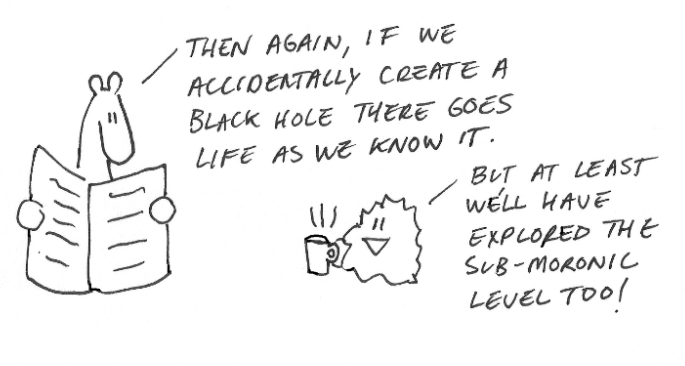 THEN AGAIN, IF WE
ACCIDENTALLY CREATE A
BLACK HOLE THERE GOES
LIFE AS WE KNOW IT.
BUT AT LEAST
WE'LL HAVE
EXPLORED THE
SUB-MORONIC
LEVEL TOO!